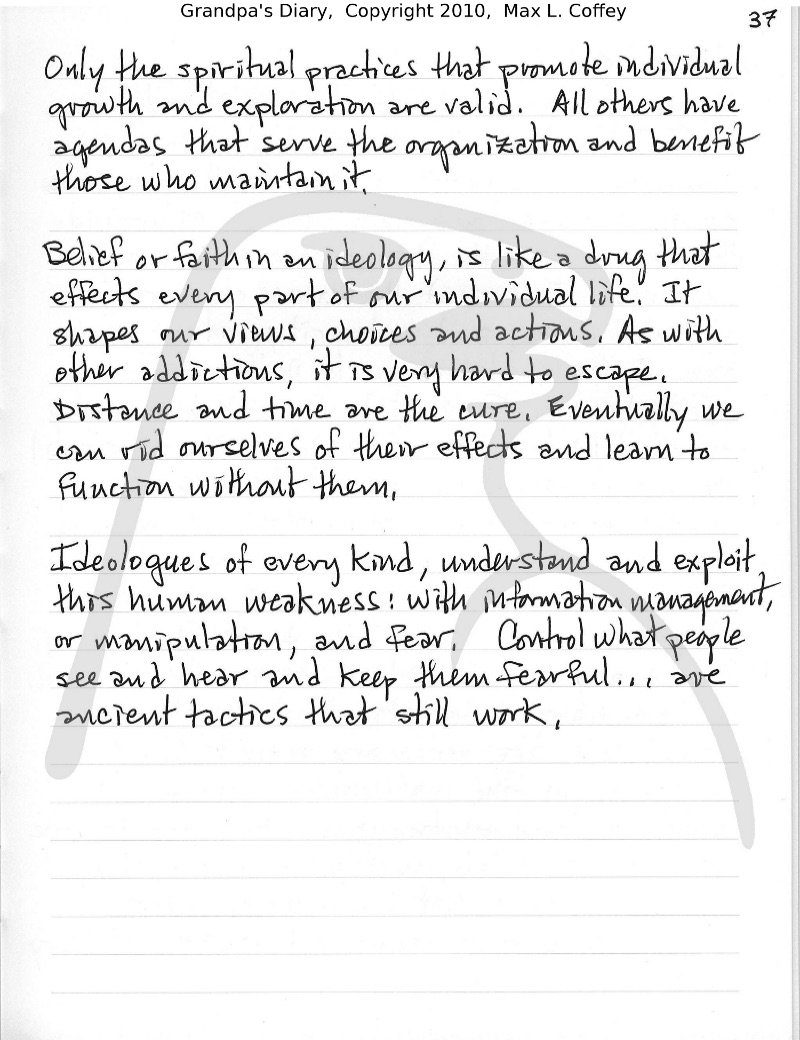 Grandpa's Diary, Copyright 2010, Max L. Coffey
37
Only the spiritual practices that promote individual
growth and exploration are valid. All others have
agendas that serve the organization and benefit
those who maintain it.
Belief or faith in an ideology, is like a drug that
effects every part of our individual life. It
shapes our views, choices and actions. As with
other addictions, it is very hard to escape.
Distance and time are the cure. Eventually we
can rid ourselves of their effects and learn to
function without them.
Ideologues of every kind, understand and exploit
this human weakness: with information management,
or manipulation, and fear. Control what people
see and hear and keep them fearful... are
ancient tactics that still work.